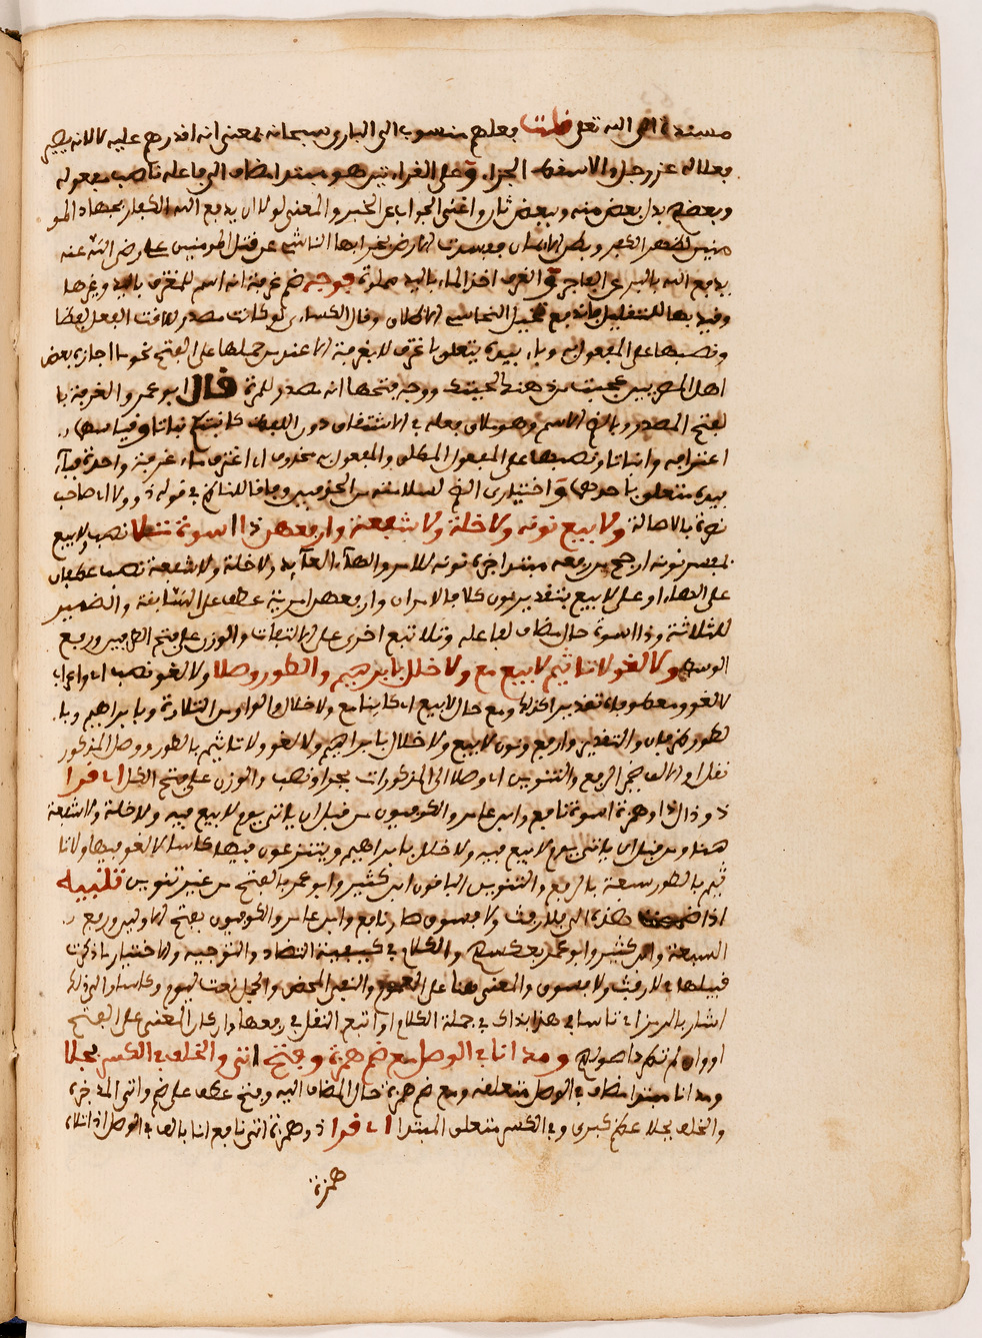 مسند الى الله تعلى قلت بعلهم منسوب الى البارى سبحانه بمعنى انه اقدرهم عليه لا لانه
بعل الله عز وجل والاسفط الجزاء وعلى القراءتين هو مبتدا مضاف الى فاعله ناصب مفعوله
وبعضهم بدل بعض منه وببعض ثان واغنى الجواب عن الخبر والمعنى لولا ان يدفع الله الكفار بجهاد المو
منين لظهر الكفر وبطل الايمان وفسدت الارض بخرابها الناشى عن قتل المومنين على رضى الله عنه
يدفع الله بالبر عن الفاجر والغرف اخذ الماء باليد مملوة فوجه ضم غرفة انه اسم للمغترف باليد وغيرها
وقيد بها للتقليل
ونصبها على المفعول به وبا بيده يتعلق باغترف لا بغرفة الا عند من حملها على الفتح نحو ما اجازه بعض
اهل المصريين عجبت من دهنك لحيتك ووجه فتحها انه مصدر للمرة قال ابو عمرو الغرفة با
لفتح المصدر وبالضم الاسم وهو ملاق فعله في الاشتقاق دون اللفظ كانبتكم نباتا وقياسها
اغترافه وانباتا ونصبها على المفعول المطلق والمفعول به محذوف اى اغترف ماء غرفة واحدة فبا
بيده متعلق باحدهما واختيارى الضم لسلامته من الحذفين وفاقا للناظم في قوله ذو ولا اى صاحب
نصرة بالاصالة ولا بيع نونه ولا خلة ولا شفعة وارفعهن ذا اسوة تلا نصب ولا بيع
لمفسر نونه ارجح من رفعه مبتدا خبره نونه للامر والهاء العايد ولا خلة ولا شفعة نصب عطفان
على الهاء او على لا بيع بتقدير نون كلا فالامران وارفعهن امرية عطف على السابقة والضمير
للثلاثة وذا اسوة حال مضاف لفاعله وتلا تبع اخرى على الاتباع والوزن على فتح الطرفين ورفع
الوسط ولا لغو لا تاثيم لا بيع مع ولا خلال بابرهيم والطور وصلا ولا لغو نصب اى واقرا
لا لغو ومعطوفاه تقديرا كذلك ومع حال لا بيع اى كاينا مع ولا خلال والواو من التلاوة وبابراهيم وبا
لطور ظرفان والتقدير وارفع ونون لا بيع ولا خلال بابراهيم ولا لغو ولا تاثيم بالطور ووصل المذكور
نقل او الالف ضمير الرفع والتنوين اى وصلا الى المذكورات بحرا ونصب والوزن على فتح الكل اى قرا
ذو ذال ذا وهمزة اسوة نافع وابن عامر والكوفيون من قبل ان ياتى يوم لا بيع فيه ولا خلة ولا شفعة
هنا ومن قبل ان ياتى يوم لا بيع فيه ولا خلال بابراهيم ويتنزعون فيها كاسا لا لغو فيها ولا تا
ثيم بالطور سبعة بالرفع والتنوين الباقون ابن كثير وابو عمرو بالفتح من غير تنوين تنبيه
اذا ضمت هذه الى فلا رفث ولا فسوق صار نافع وابن عامر والكوفيون بفتح الاولين ورفع
السبعة وابن كثير وابو عمرو بعكسهم والكلام في كيفية التضاد والتوجيه والاختيار ما ذكرت
قبيلها في لا رفث ولا فسوق والمعنى هنا على العموم والنفى المحض والجمل نعت ليوم وكاسا والى ذلك
اشار بالرمز اى تاسا في هذا بذاك في جملة الكلام او اتبع النقل في رفعها وان كان المعنى على الفتح
او وان لم تكرر اصولهم ومد انا في الوصل مع ضم همزة وفتح اتى والخلف في الكسر بجلا
ومد انا مبتدا مضاف في الوصل متعلقه ومع ضم همزة حال المضاف اليه وفتح عطف على ضم واتى المد خبره
والخلف بجلا عطف كبرى وفي الكسر متعلق المبتدا اى قرا ذو همزة اتى نافع انا بالف في الوصل اذا تلاه
همزة